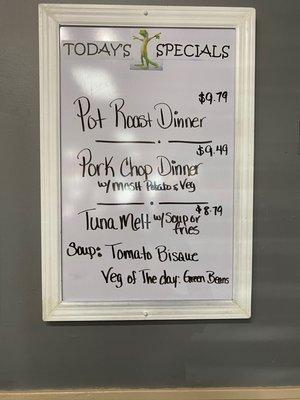 TODAY'S SPECIALS
$9.79
Pot Roast Dinner
$9.49
Pork Chop Dinner
w/ mash Potato & Veg
$8.79
Tuna Melt w/ Soup or
fries
Soup: Tomato Bisque
Veg of The day: Green Beans